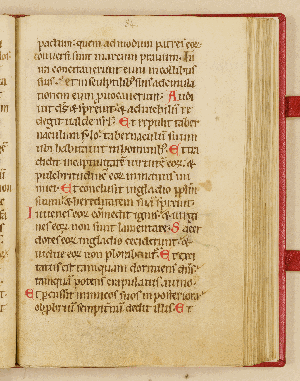 84.
pactum: quem admodum patres eoɀ
conuersi sunt in arcum prauum. In
ira concitauerunt eum in collibus
suis: et in sculptilibus suis ad emula
tionem eum prouocauerunt. Audi
uit ds̄ & spreuit: & ad nichilum re
degit ualde isrł. Et repulit taber
naculum sylo: tabernaculum suum
ubi habitauit in hominibus. Et tra
didit in captiuitatē uirtutē eoɀ: &
pulchritudinē eoɀ in manus ini
mici. Et conclusit in gladio ppłm
suum: & hereditatem suā spreuit.
Iuuenes eoɀ comedit ignis: & uirgi
nes eoɀ non sunt lamentate. Sacer
dotes eoɀ in gladio ceciderunt: &
uidue eoɀ non plorabant̄. Et exci
tatus est tanquam dormiens dn̄s:
tanquā potens crapulatus a uino.
Et percussit inimicos suos in posteriora:
obprobriū sempiternū dedit illis. Et